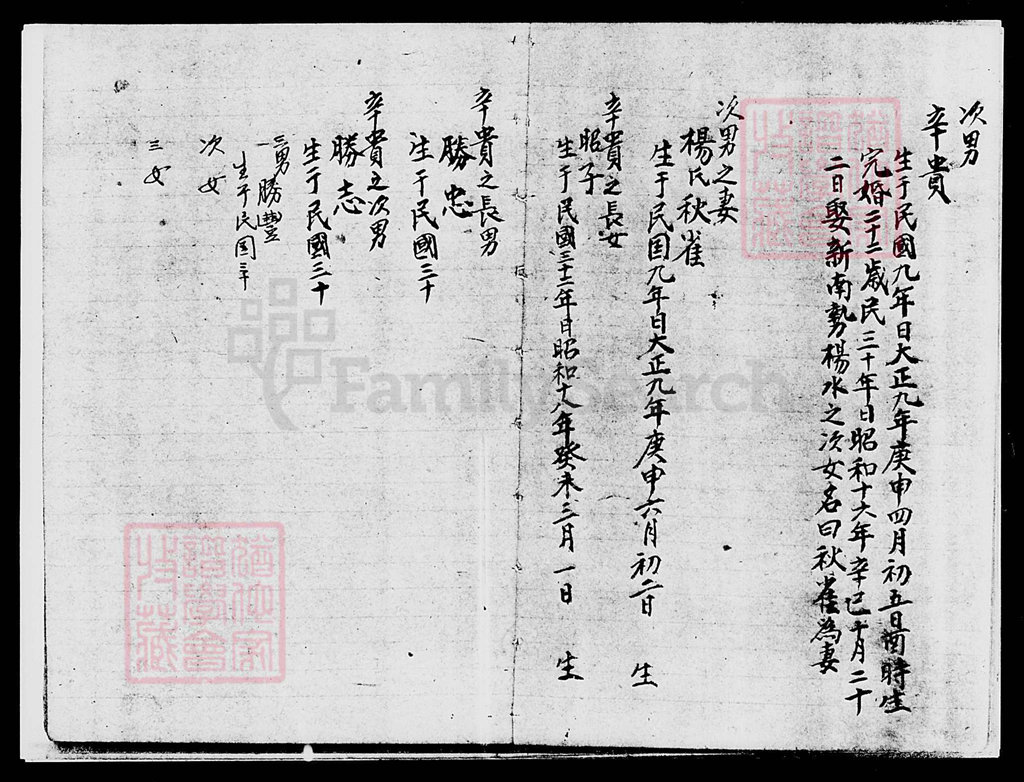 次男
辛貴
生于民國九年日大正九年庚申四月初五日酉時生
完婚二十二歲民三十年日昭和十六年辛巳十月二十
二日娶新南勢楊水之次女名曰秋雀為妻
次男之妻
楊氏秋雀
生于民国九年日大正九年庚申六月初二日 生
辛貴之長女
昭子
生于民國三十二年日昭和十八年癸未三月一日 生
辛貴之長男
勝忠
生于民國三十
辛貴之次男
勝志
生于民國三十
三男 勝豐
生于民国三十
次女
三女
FamilySearch